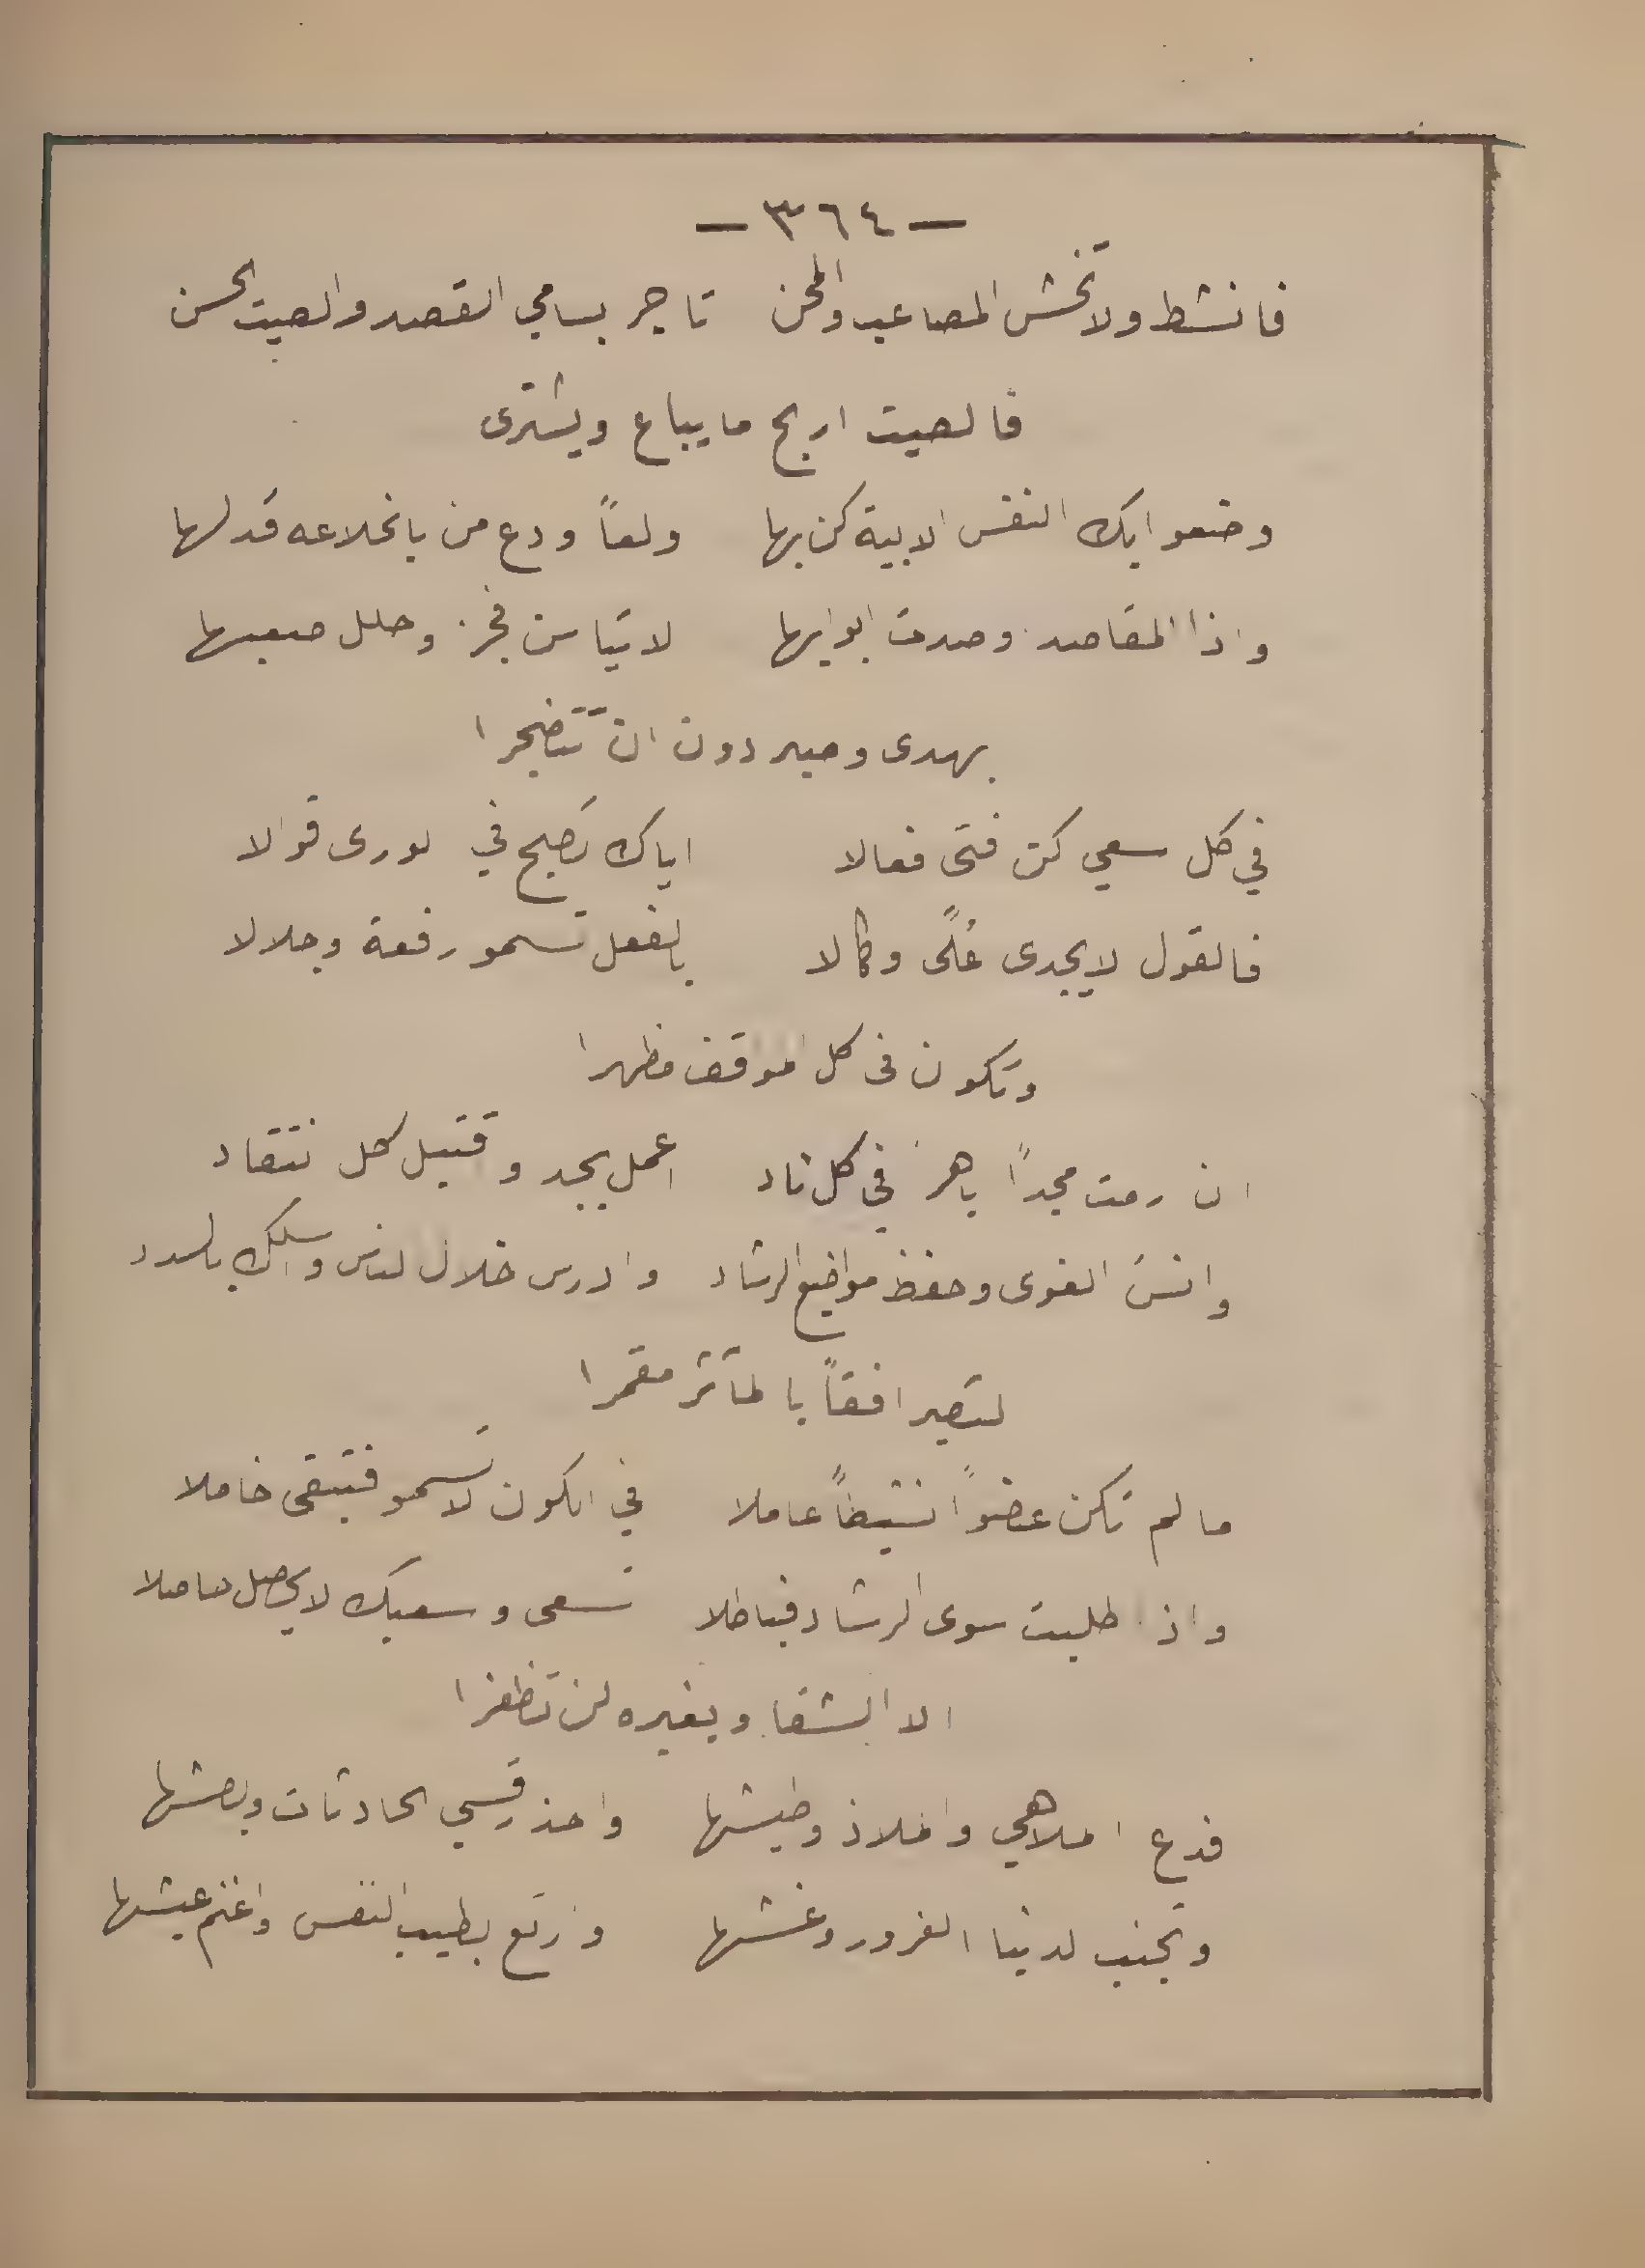 — ٣٦٤ —
فانشط ولا تخش المصاعب والمحن تاجر بسامي القصد والصيت الحسن
فالصيت اربح ما يباع ويشترى
النفس الابية كن بها ولعاً ودع من بانخلاعه قد لها
واذا المقاصد وصدت ابوابها لا تيأسن وحلل صعبها
بهدى وصبر دون ان تتضجرا
في كل سعي كن فتى فعالا اياك تصبح في لورى قوالا
فالقول لا يجدى عُلًى وكمالا بالفعل تسمو رفعة وجلالا
وتكون فى كل موقف مظهرا
ان رمت مجداً باهر في كل ناد اعمل بجد وقتبل كل نتقاد
وانسَ الغوى وحفظ مواضيع الرشاد وادرس خلال لناس واسلك بالسدد
لتصير افقاً بالمآثر مقمرا
ما لم تكن عضواً نشيطاً عاملا في الكون لا تسمو فتبقى خاملا
واذا طلبت سوى الرشاد فباطلا تسعى وسعيك لا يحصل حاصلا
الا الشقا وبغيره لن تظفرا
فدع الملاهي والملاذ وطيشها واحذر قسي الحادثات وبطشها
وتجنب لدنيا الغرور وغشها وارتع بطيب النفس واغنم عيشها